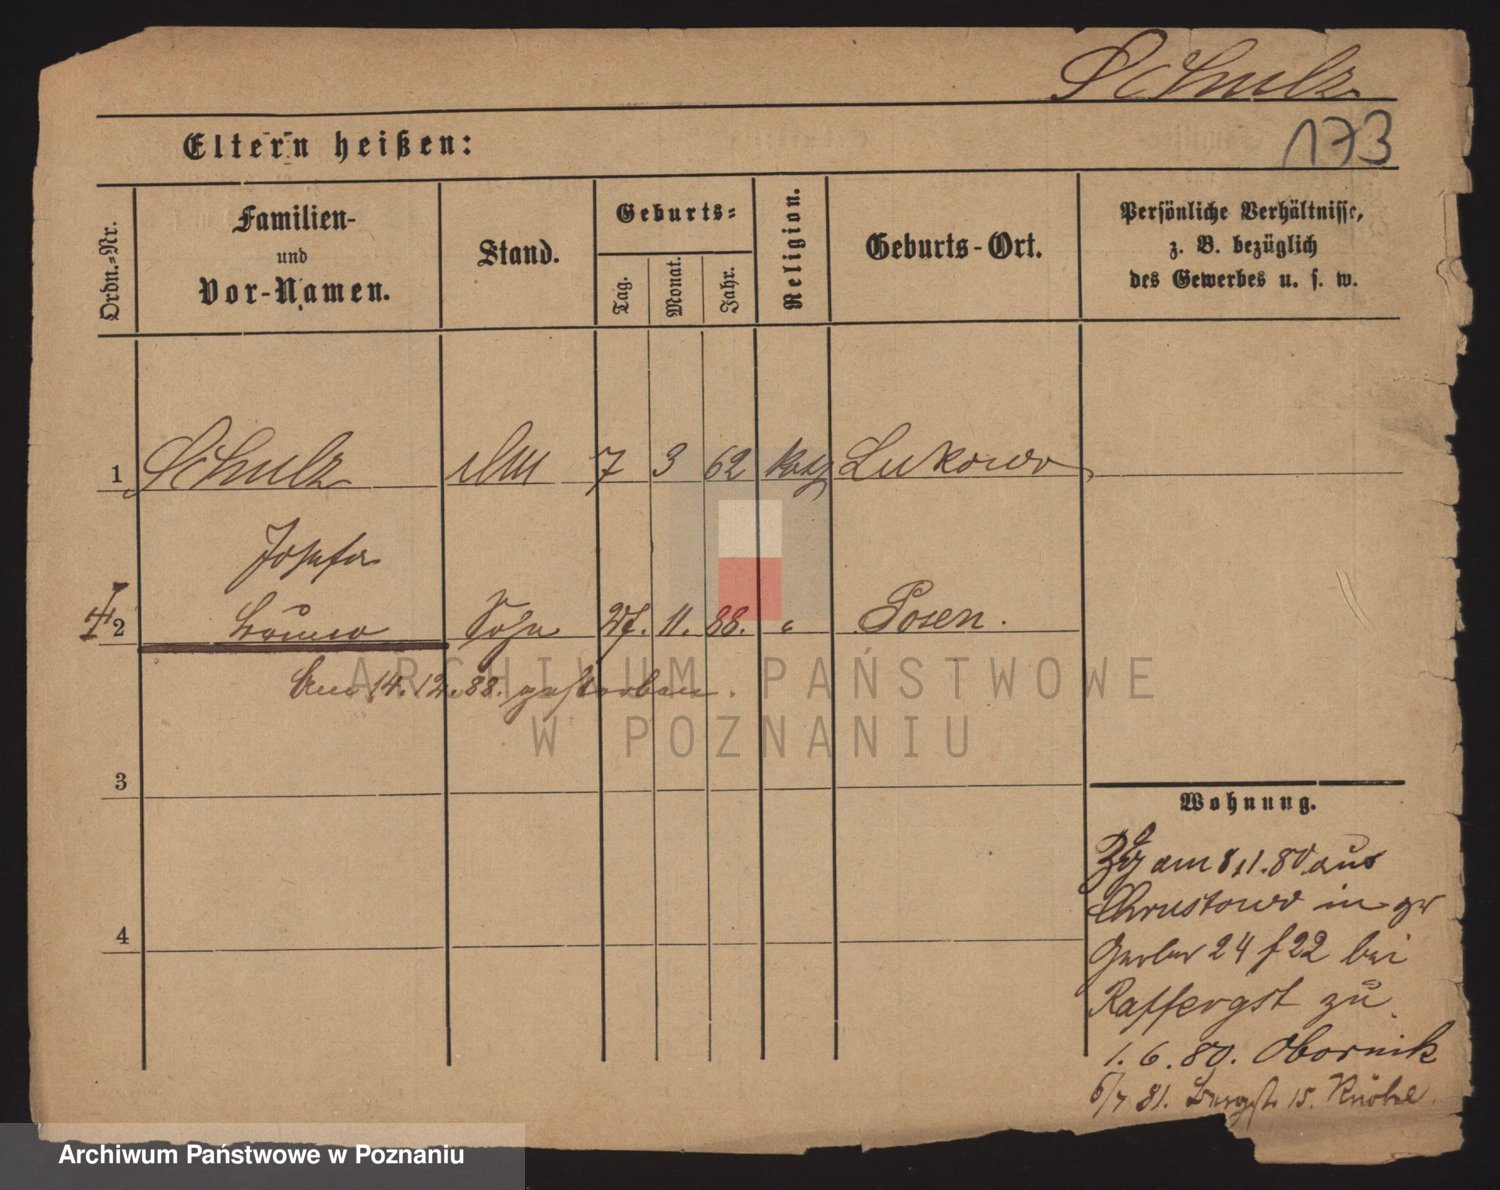 Schulz
173
Eltern heißen:
Ordn.-Nr.
Familien-
und
Vor-Namen.
Stand.
Geburts-
Tag.
Monat.
Jahr.
Religion.
Geburts-Ort.
Persönliche Verhältnisse,
z. B. bezüglich
des Gewerbes u. s. w.
1 Schulz 7 3 62 kath Lukowo
Josefa
2 Sohn 27. 11. 88. " Posen.
Am 14.12.88. gestorben.
3
4
Wohnung.
Zg am 8/1.80 aus
Chrustowo in gr
Gerber 24 f 22 bei
zu
1.6.80. Obornik
6/7 81. 15.
ARCHIWUM PAŃSTWOWE
W POZNANIU
Archiwum Państwowe w Poznaniu